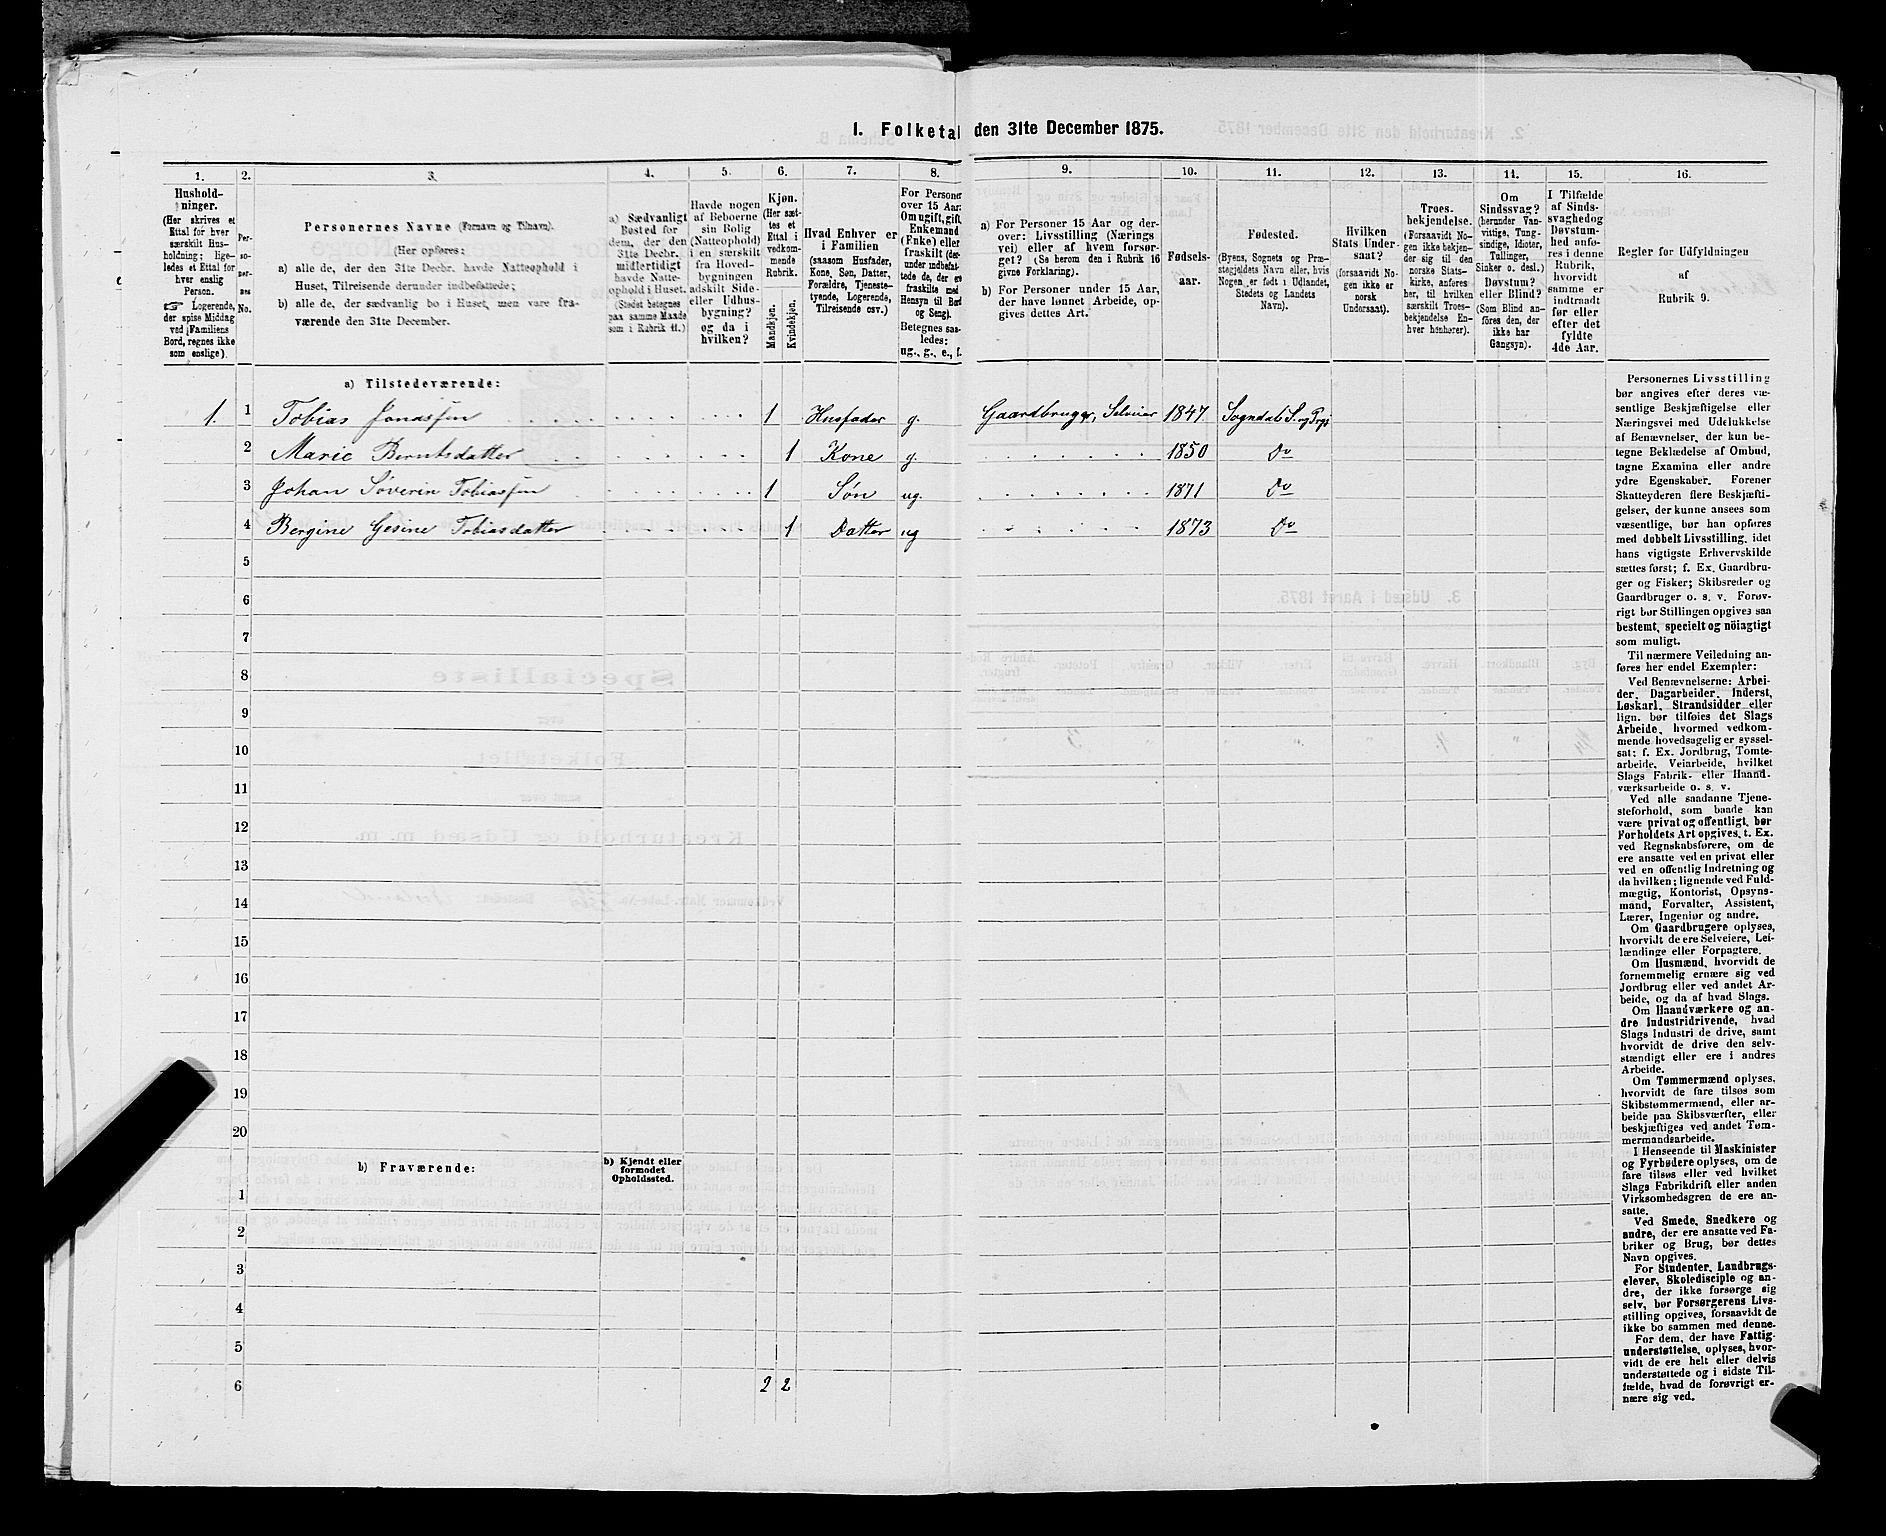 1. Folketal den 31te December 1875.
1.
Hushold-
ninger.
(Her skrives et
Ettal for hver
særskilt Hus-
holdning; lige-
ledes et Ettal for
hver enslig
Person.
☞ Logerende,
der spise Middag
ved Familiens
Bord, regnes ikke
som enslige).
2.
Per-
so-
ner-
nes
No.
3.
Personernes Navne (Fornavn og Tilnavn).
(Her opføres:
a) alle de, der den 31te Decbr. havde Natteophold i
Huset, Tilreisende derunder indbefattede;
b) alle de, der sædvanlig bo i Huset, men vare fra-
værende den 31te December.
4.
a) Sædvanligt
Bosted for
dem, der den
31te Decbr.
midlertidigt
havde Natte-
ophold i Huset.
(Stedet betegnes
paa samme Maade
som i Rubrik 11.)
5.
Havde nogen
af Beboerne
sin Bolig
(Natteophold)
i en særskilt
fra Hoved-
bygningen
adskilt Side-
eller Udhus-
bygning?
og da i
hvilken?
6.
Kjøn.
(Her sæt-
tes et
Ettal i
vedkom-
mende
Rubrik.
Mandkjøn.
Kvindekjøn.
7.
Hvad Enhver er
i Familien
(saasom Husfader,
Kone, Søn, Datter,
Forældre, Tjeneste-
tyende, Logerende,
Tilreisende osv.)
8.
For Personer
over 15 Aar:
Om ugift, gift,
Enkemand
(Enke) eller
fraskilt (der-
under indbefat-
tede de, der er
fraskilte med
Hensyn til Bord
og Seng).
Betegnes saa-
ledes:
ug., g., e., f.
9.
a) For Personer 15 Aar og der-
over: Livsstilling (Nærings-
vei) eller af hvem forsør-
get? (Se herom den i Rubrik 16
givne Forklaring).
b) For Personer under 15 Aar,
der have lønnet Arbeide, op-
gives dettes Art.
10.
Fødsels-
aar.
11.
Fødested.
(Byens, Sognets og Præ-
stegjeldets Navn eller, hvis
Nogen er født i Udlandet,
Stedets og Landets
Navn).
12.
Hvilken
Stats Under-
saat?
(forsaavidt No-
gen ikke er
norsk
Undersaat).
13.
Troes-
bekjendelse.
(Forsaavidt No-
gen ikke bekjen-
der sig til den
norske Stats-
kirke, anføres
her, til hvilken
særskilt Troes-
bekjendelse En-
hver henhører).
14.
Om
Sindssvag?
(herunder Van-
vittige, Tung-
sindige, Idioter,
Tullinger,
Sinker o. desl.)
Døvstum?
eller Blind?
(Som Blind an-
føres den, der
ikke har
Gangsyn).
15.
I Tilfælde
af Sinds-
svaghed og
Døvstum-
hed anfø-
res i denne
Rubrik,
hvorvidt
samme er
indtraadt
før eller
efter det
fyldte
4de Aar.
16.
Regler for Udfyldningen
af
Rubrik 9.
a) Tilstedeværende:
1. 1 Tobias Jonassen 1 Husfader g. Gaardbruger, Selveier 1847 Sogndals S. og Prgj
2 Marie Berntsdatter 1 Kone g. 1850 Do
3 Johan Søverin Tobiassen 1 Søn ug. 1871 Do
4 Bergine Gesine Tobiasdatter 1 Datter ug 1873 Do
5
6
7
8
9
10
11
12
13
14
15
16
17
18
19
20
b) Fraværende:
b) Kjendt eller
formodet
Opholdssted.
1
2
3
4
5
6 2 2
Personernes Livsstilling
bør angives efter deres væ-
sentlige Beskjæftigelse eller
Næringsvei med Udelukkelse
af Benævnelser, der kun be-
tegne Beklædelse af Ombud,
tagne Examina eller andre
ydre Egenskaber. Forener
Skatteyderen flere Beskjæfti-
gelser, der kunne ansees som
væsentlige, bør han opføres
med dobbelt Livsstilling, idet
hans vigtigste Erhvervskilde
sættes først; f. Ex. Gaardbru-
ger og Fisker; Skibsreder og
Gaardbruger o. s. v. Forøv-
rigt bør Stillingen opgives saa
bestemt, specielt og nöiagtigt
som muligt.
Til nærmere Veiledning an-
føres her endel Exempler:
Ved Benævnelserne: Arbei-
der, Dagarbeider, Inderst,
Løskarl, Strandsidder eller
lign. bør tilføies det Slags
Arbeide, hvormed vedkom-
mende hovedsagelig er syssel-
sat; f. Ex. Jordbrug, Tomte-
arbeide, Veiarbeide, hvilket
Slags Fabrik- eller Haand-
værksarbeide o. s. v.
Ved alle saadanne Tjene-
steforhold, som baade kan
være privat og offentligt, bør
Forholdets Art opgives, t. Ex.
ved Regnskabsførere, om de
ere ansatte ved en privat eller
ved en offentlig Indretning og
da hvilken; lignende ved Fuld-
mægtig, Kontorist, Opsyns-
mand, Forvalter, Assistent,
Lærer, Ingeniør og andre.
Om Gaardbrugere oplyses,
hvorvidt de ere Selveiere, Lei-
lændinge eller Forpagtere.
Om Husmænd, hvorvidt de
fornemmelig ernære sig ved
Jordbrug eller ved andet Ar-
beide, og da af hvad Slags.
Om Haandværkere og an-
dre Industridrivende, hvad
Slags Industri de drive, samt
hvorvidt de drive den selv-
stændigt eller ere i andres
Arbeide.
Om Tømmermænd oplyses,
hvorvidt de fare tilsøs som
Skibstømmermænd, eller ar-
beide paa Skibsværfter, eller
beskjæftiges ved andet Tøm-
mermandsarbeide.
I Henseende til Maskinister
og Fyrbødere oplyses, om de
fare tilsøs eller ved hvilket
Slags Fabrikdrift eller anden
Virksomhedsgren de ere an-
satte.
Ved Smede, Snedkere og
andre, der ere ansatte ved Fa-
briker og Brug, bør dettes
Navn opgives.
For Studenter, Landbrugs-
elever, Skoledisciple og an-
dre, der ikke forsørge sig
selv, bør Forsørgerens Livs-
stilling opgives, forsaavidt de
ikke bo sammen med denne.
For dem, der have Fattig-
understøttelse, oplyses, hvor-
vidt de ere helt eller delvis
understøttede og i sidste Til-
fælde, hvad de forøvrigt er-
nære sig ved.